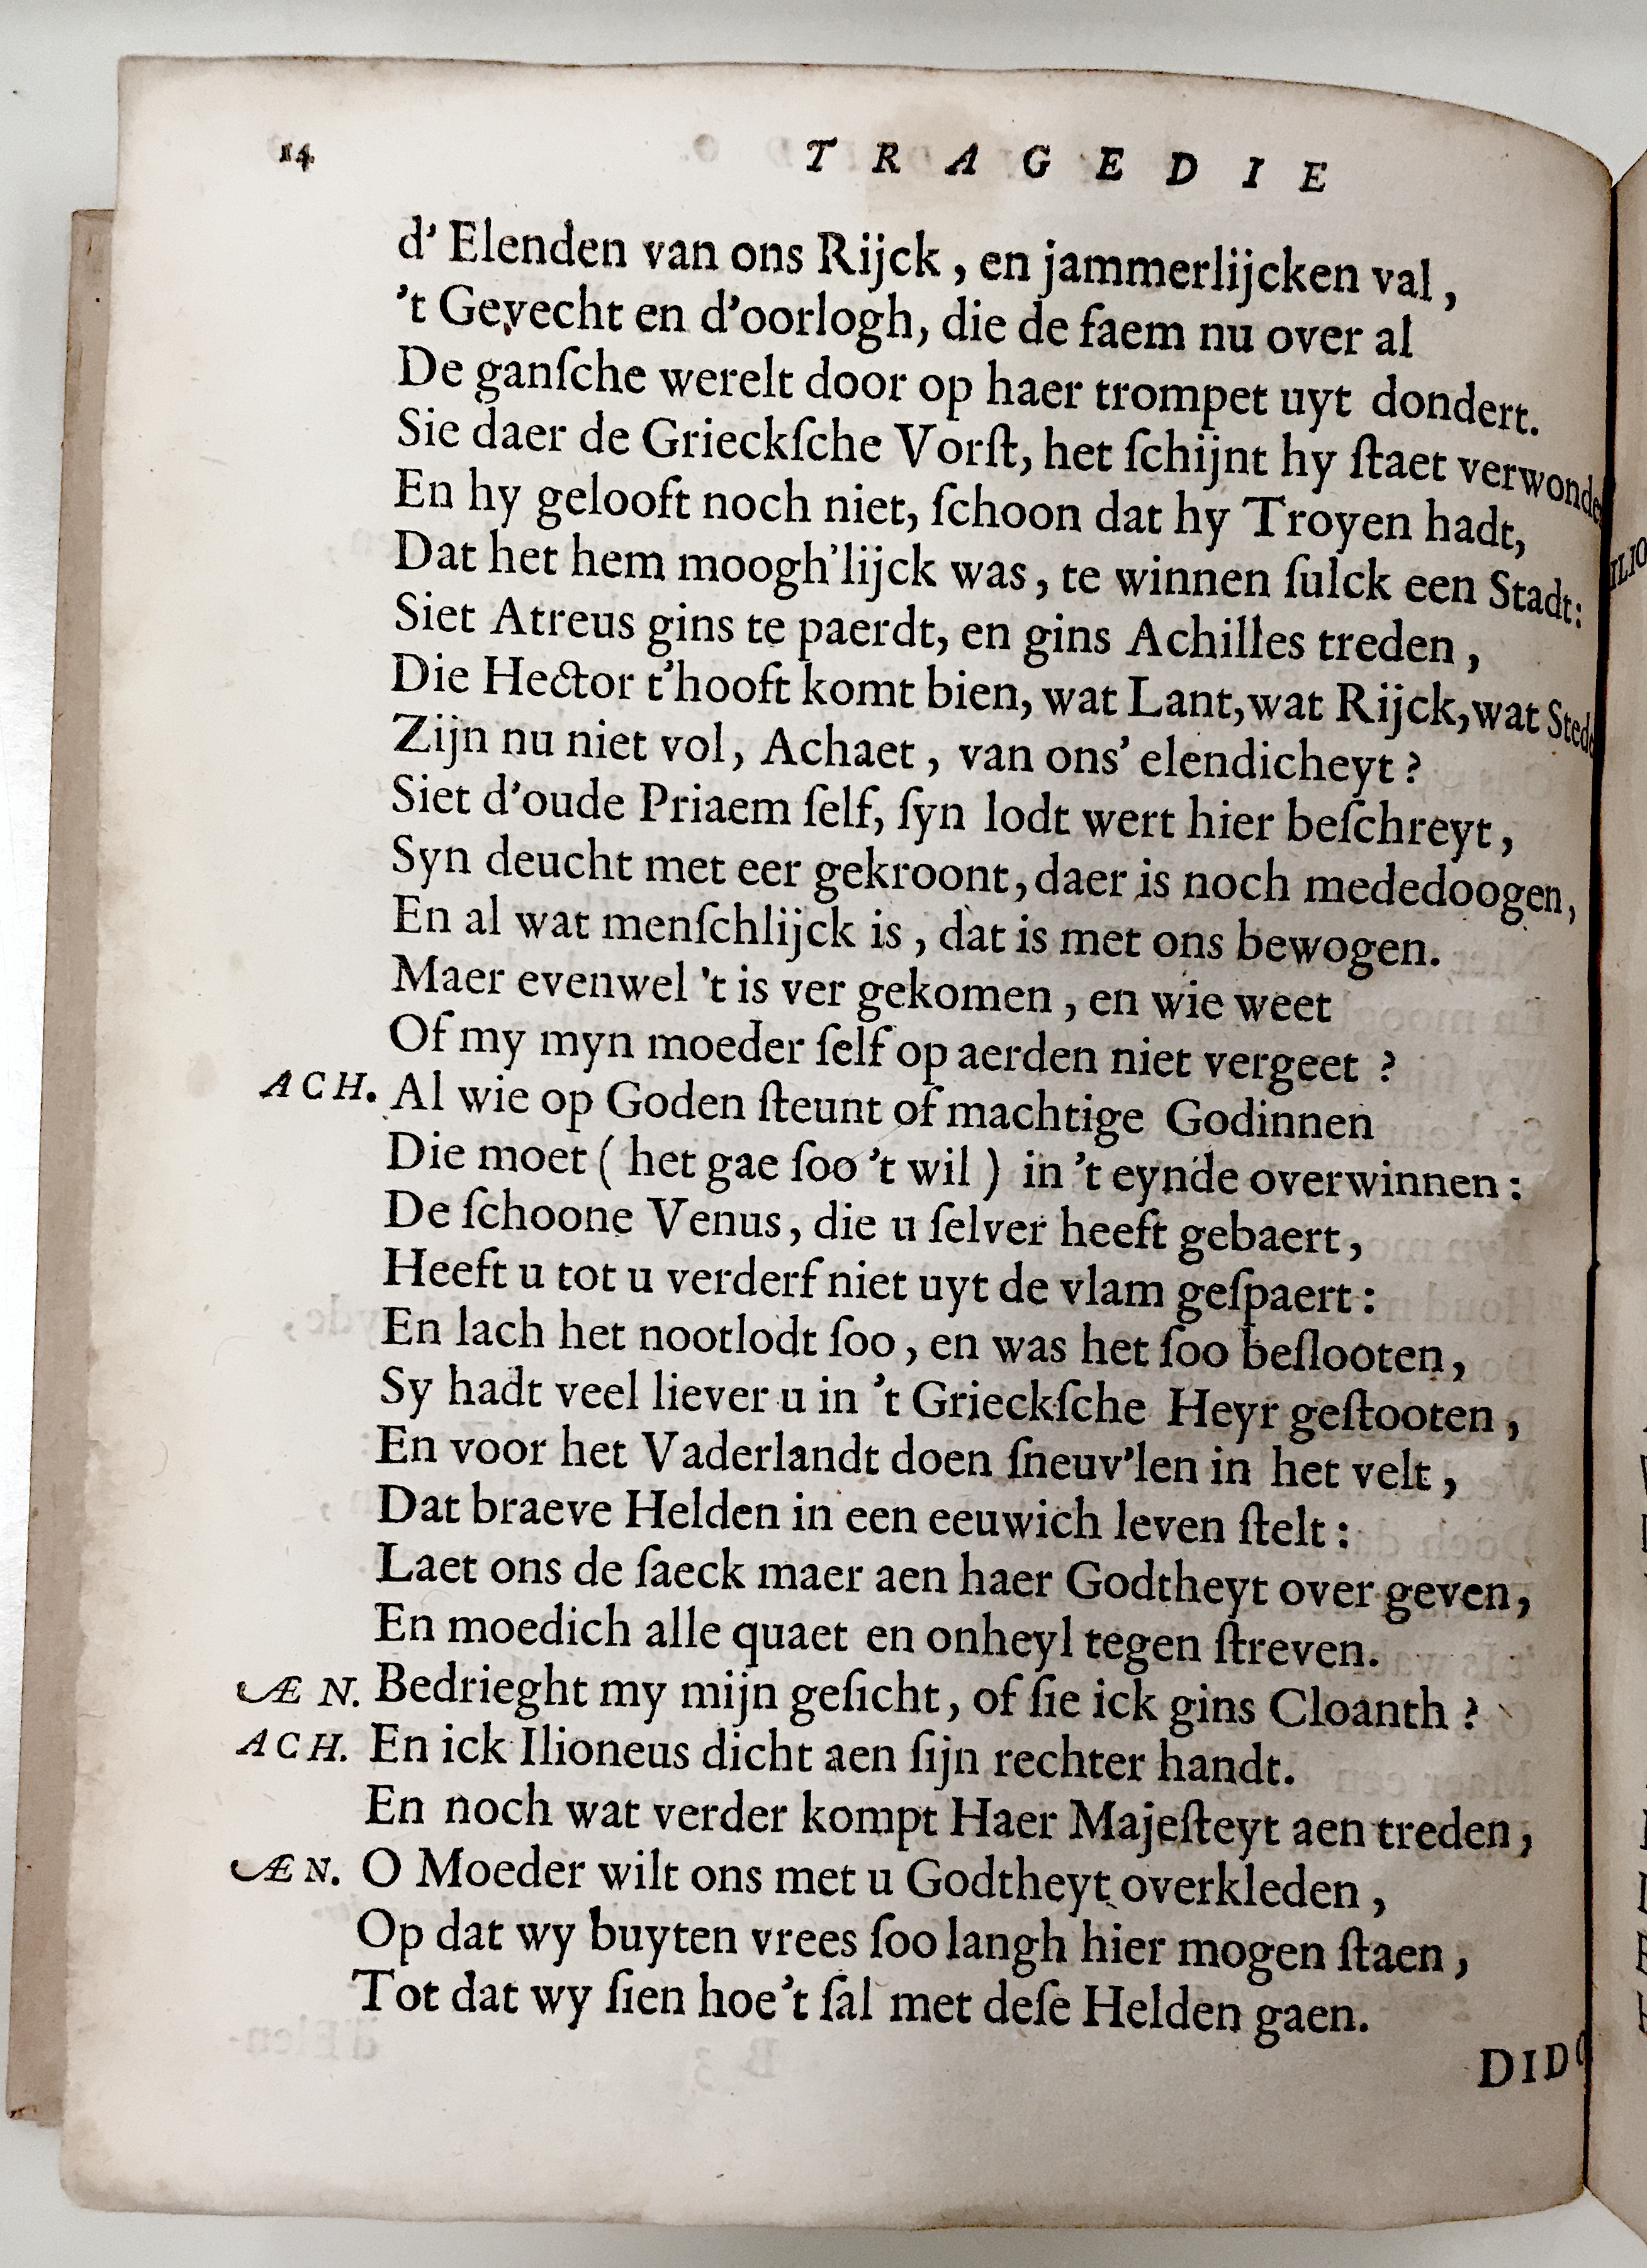 14 TRAGEDIE
d' Elenden van ons Rijck, en jammerlijcken val,
't Gevecht en d'oorlogh, die de faem nu over al
De ganſche werelt door op haer trompet uyt dondert.
Sie daer de Grieckſche Vorſt, het ſchijnt hy ſtaet verwonde
En hy gelooft noch niet, ſchoon dat hy Troyen hadt,
Dat het hem moogh'lijck was, te winnen ſulck een Stadt:
Siet Atreus gins te paerdt, en gins Achilles treden,
Die Hector t'hooft komt bien, wat Lant, wat Rijck, wat Sted
Zijn nu niet vol, Achaet, van ons' elendicheyt?
Siet d'oude Priaem ſelf, ſyn lodt wert hier beſchreyt,
Syn deucht met eer gekroont, daer is noch mededoogen,
En al wat menſchlijck is, dat is met ons bewogen.
Maer evenwel 't is ver gekomen, en wie weet
Of my myn moeder ſelf op aerden niet vergeet?
ACH. Al wie op Goden ſteunt of machtige Godinnen
Die moet (het gae ſoo 't wil) in 't eynde overwinnen:
De ſchoone Venus, die u ſelver heeft gebaert,
Heeft u tot u verderf niet uyt de vlam geſpaert:
En lach het nootlodt ſoo, en was het ſoo beſlooten,
Sy hadt veel liever u in 't Grieckſche Heyr geſtooten,
En voor het Vaderlandt doen ſneuv'len in het velt,
Dat braeve Helden in een eeuwich leven ſtelt:
Laet ons de ſaeck maer aen haer Godtheyt over geven,
En moedich alle quaet en onheyl tegen ſtreven.
ÆN. Bedrieght my mijn geſicht, of ſie ick gins Cloanth?
ACH. En ick Ilioneus dicht aen ſijn rechter handt.
En noch wat verder kompt Haer Majeſteyt aen treden,
ÆN. O Moeder wilt ons met u Godtheyt overkleden,
Op dat wy buyten vrees ſoo langh hier mogen ſtaen,
Tot dat wy ſien hoe't ſal met deſe Helden gaen.
DIDO
ILIO